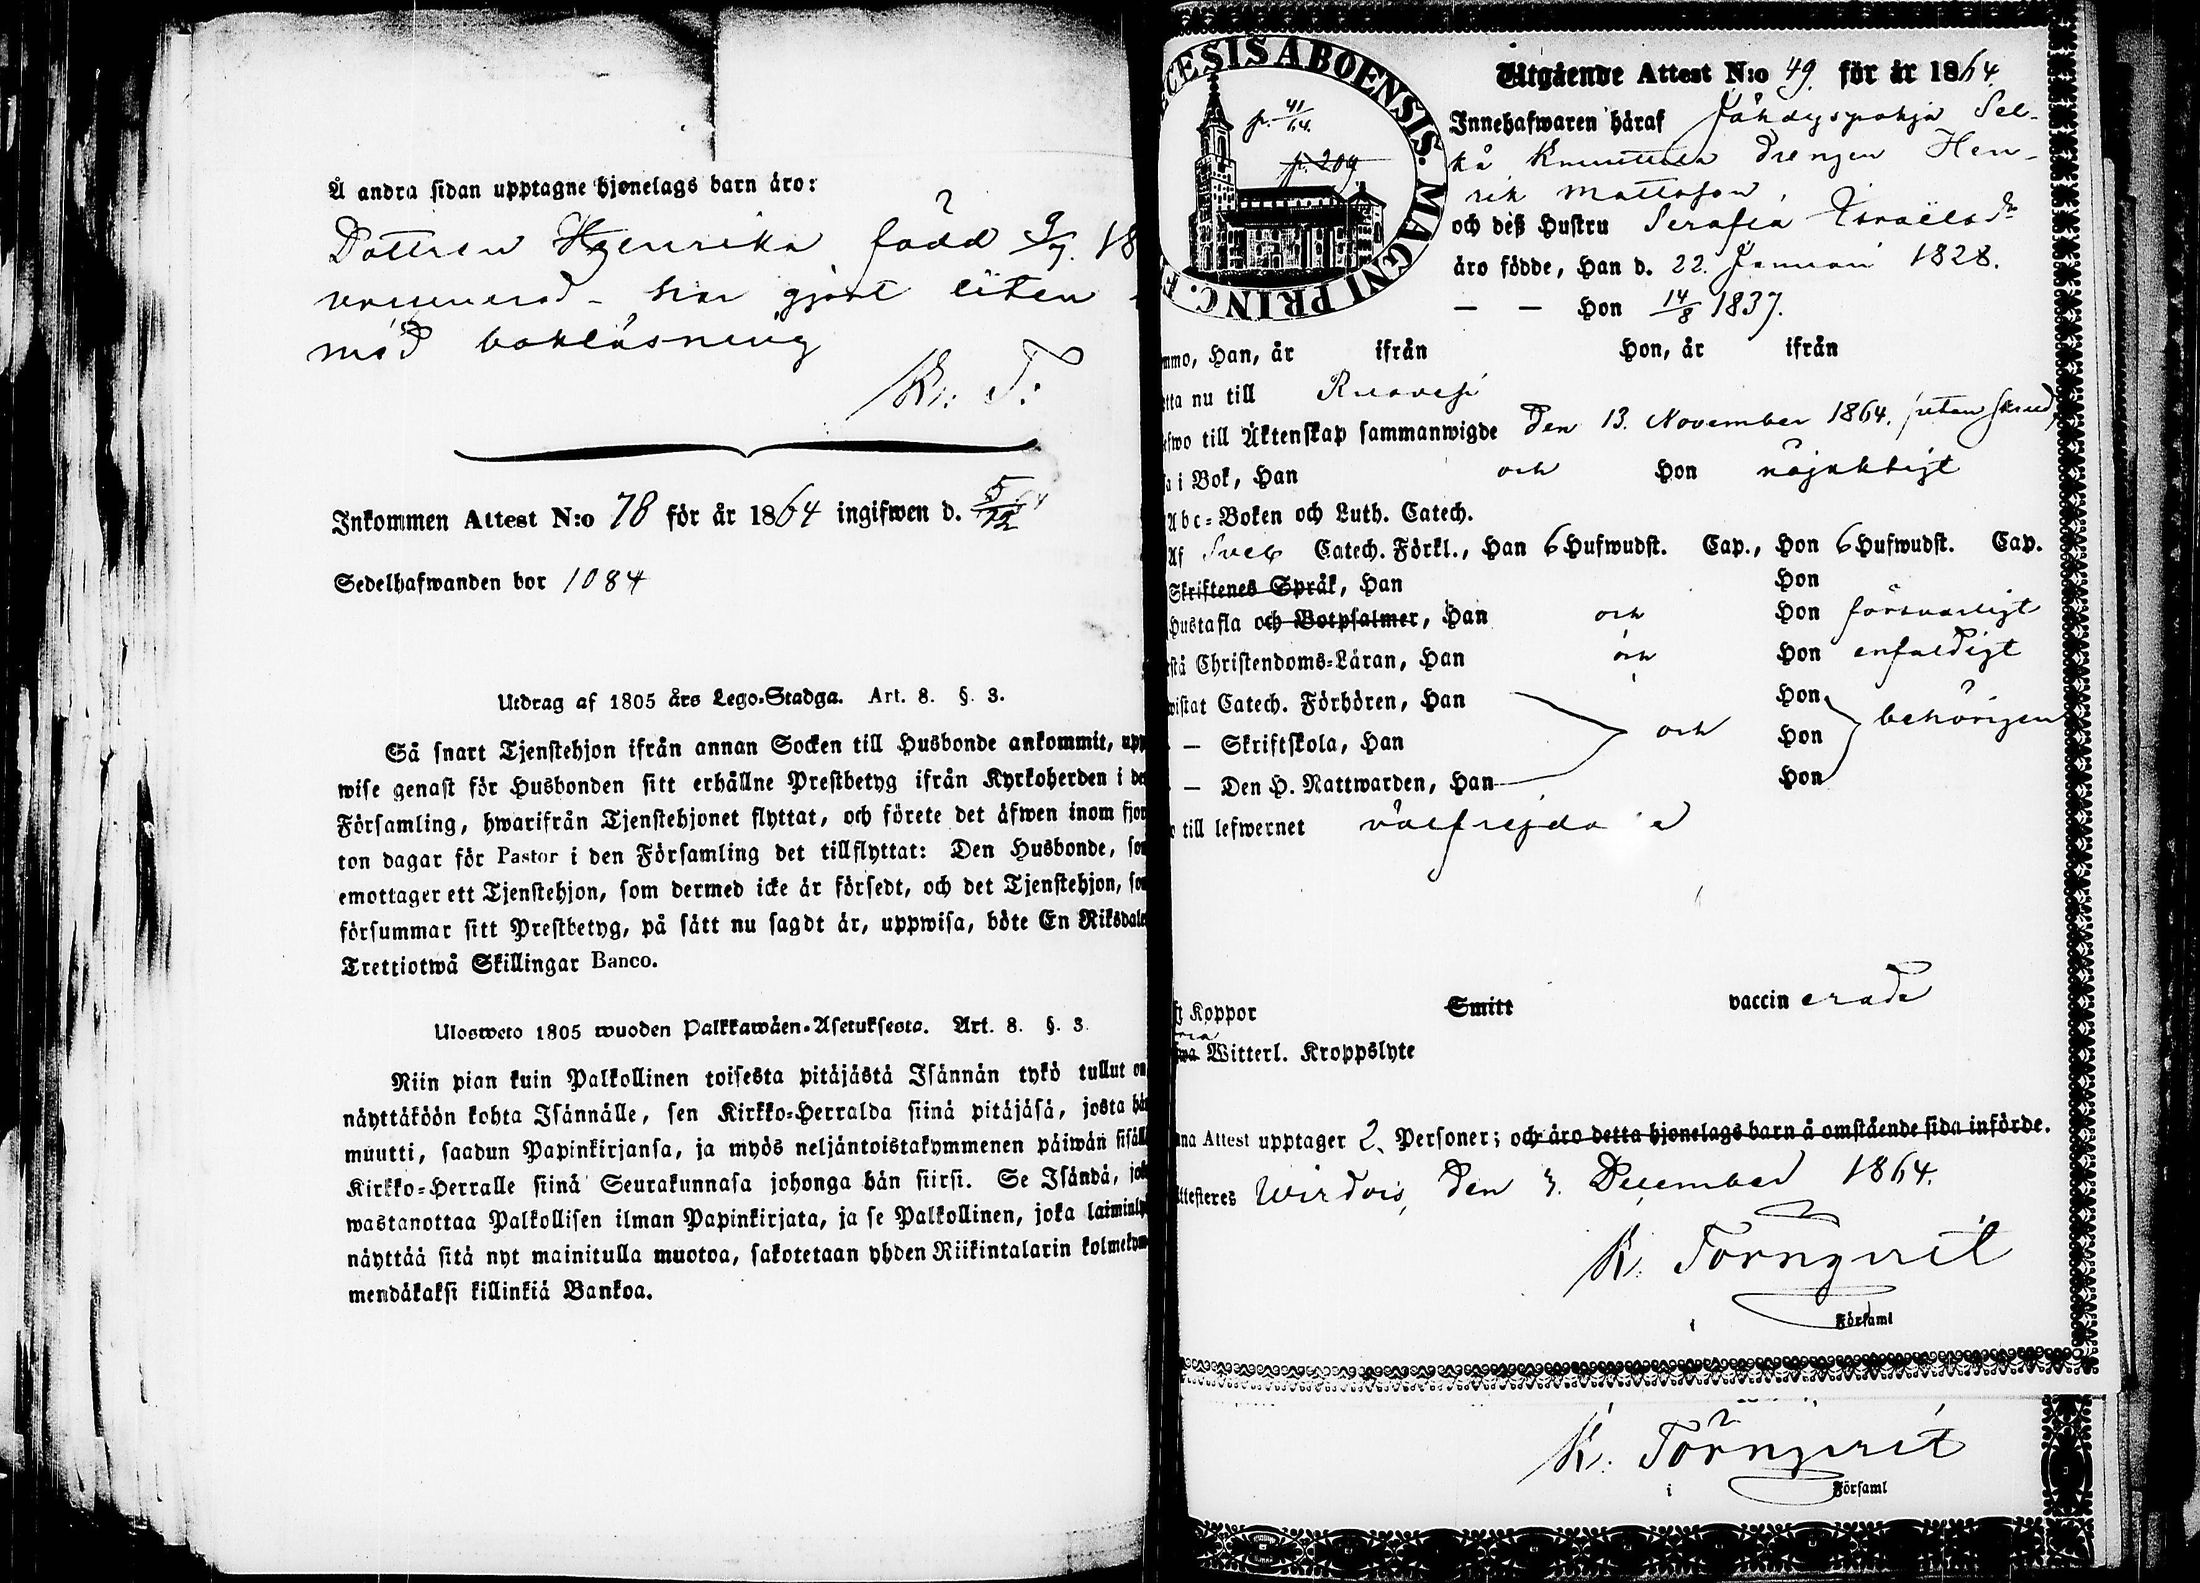 Å andra sidan upptagne hjonelags barn äro:
Dottren Henrika född 9/7. 18
vaccinerad - har gjort liten
med bokläsning
K: T:
Inkommen Attest N:o 78 för år 1864 ingifwen d. 5/12 64
Sedelhafwanden bor 1084
Utdrag af 1805 års Lego-Stadga. Art. 8. §. 3.
Så snart Tjenstehjon ifrån annan Socken till Husbonde ankommit, upp
wise genast för Husbonden sitt erhållne Prestbetyg ifrån Kyrkoherden i de
Församling, hwarifrån Tjenstehjonet flyttat, och förete det äfwen inom fjor
ton dagar för Pastor i den Församling det tillflyttat: Den Husbonde, so
emottager ett Tjenstehjon, som dermed icke är försedt, och det Tjenstehjon, so
försummar sitt Prestbetyg, på sätt nu sagdt är, uppwisa, böte En Riksdale
Trettiotwå Skillingar Banco.
Ulosweto 1805 wuoden Palkkawäen-Asetuksesta. Art. 8. §. 3.
Niin pian kuin Palkollinen toisesta pitäjästä Isännän tykö tullut on
näyttäköön kohta Isännälle, sen Kirkko-Herralda siinä pitäjäsä, josta hä
muutti, saadun Papinkirjansa, ja myös neljäntoistakymmenen päiwän sisäll
Kirkko-Herralle siinä Seurakunnasa johonga hän siirsi. Se Isändä, jok
wastanottaa Palkollisen ilman Papinkirjata, ja se Palkollinen, joka laiminly
näyttää sitä nyt mainitulla muotoa, sakotetaan yhden Riikintalarin kolmekym
mendäkaksi killinkiä Bankoa.
CESIS ABOENSIS. MAGNI PRINC. F
p. 41/64.
p. 209
Utgående Attest N:o 49. för år 1864.
Innehafwaren häraf Jähdyspohja Sel-
kä Knuuttila Drengen Hen-
rik Mattsson
och deß Hustru Serafia Israelsdr
äro födde, Han d. 22. Januari 1828.
— — Hon 14/8 1837.
mmo, Han, år ifrån Hon, år ifrån
tta nu till Ruovesi
fwo till Äktenskap sammanwigde den 13. November 1864. (utan skrud)
a i Bok, Han och Hon nöjaktigt
Abc-Boken och Luth. Catech.
Af Sveb Catech. Förkl., Han 6 Hufwudst. Cap., Hon 6 Hufwudst. Cap.
Skriftenes Språk, Han Hon
Hustafla och Botpsalmer, Han och Hon försvarligt
stå Christendoms-Läran, Han och Hon enfaldigt
wistat Catech. Förhören, Han Hon
— Skriftskola, Han och Hon behörigen
— Den H. Nattwarden, Han Hon
till lefwernet välfrejda
ft Koppor Smitt vaccinerade
Witterl. Kroppslyte
na Attest upptager 2. Personer; och äro detta hjonelags barn å omstående sida införde.
ttesteres Wirdois, den 3. December 1864.
K. Törnqvist
i Församl
K. Törnqvist
i Församl